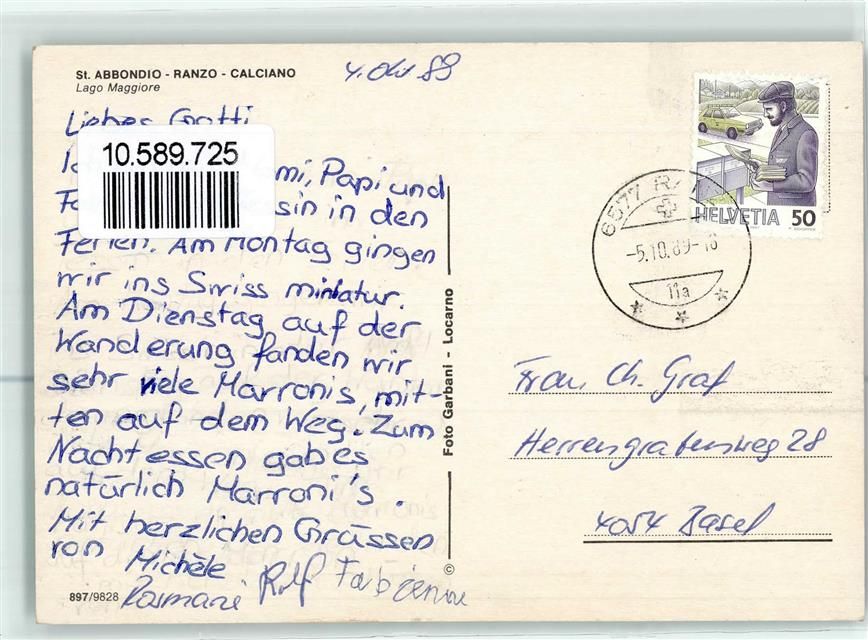 St. ABBONDIO - RANZO - CALCIANO
Lago Maggiore
4. Okt 89
Liebes Grotti
10.589.725
mi, Papi und
sin in den
Ferien. Am Montag gingen
wir ins Swiss miniatur.
Am Dienstag auf der
Wanderung fanden wir
sehr viele Marronis, mit-
ten auf dem Weg. Zum
Nachtessen gab es
natürlich Marroni's.
Mit herzlichen Grüssen
von Michèle
Rosmarie Rolf Fabienne
897/9828
Foto Garbani - Locarno
©
HELVETIA 50
6577
-5.10.89-18
11a
Frau Ch. Graf
Herrengrabenweg 28
4054 Basel